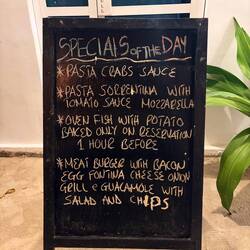 SPECIALS OF THE DAY
*PASTA CRABS SAUCE
*PASTA SORRENTINA WITH
TOMATO SAUCE MOZZARELLA
*OVEN FISH WITH POTATO
BACKED ONLY ON RESERVATION
1 HOUR BEFORE
*MEAT BURGER WITH BACON
EGG FONTINA CHEESE ONION
GRILL & GUACAMOLE WITH
SALAD AND CHIPS